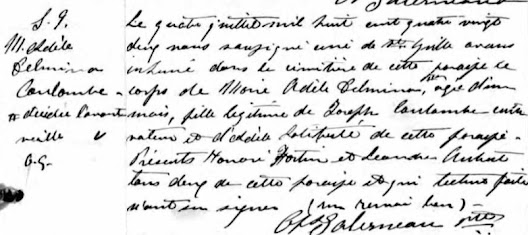 S. 9.
M. Adèle
Delmina
Coulombe
# décédée l'avant
veille
O. G.
Le quatre juillet mil huit cent quatre vingt
deux nous soussigné curé de Ste. avons
inhumé dans le cimetière de cette paroisse le
corps de Marie Adèle Delmina, # agée d'un
mois, fille légitime de Joseph Coulombe culti
vateur et d'Adèle de cette paroisse.
Présents Honoré Fortin et Leandre
tous deux de cette paroisse et qui lecture faite
n'ont su signer (un renvoi bon) -
Ptre